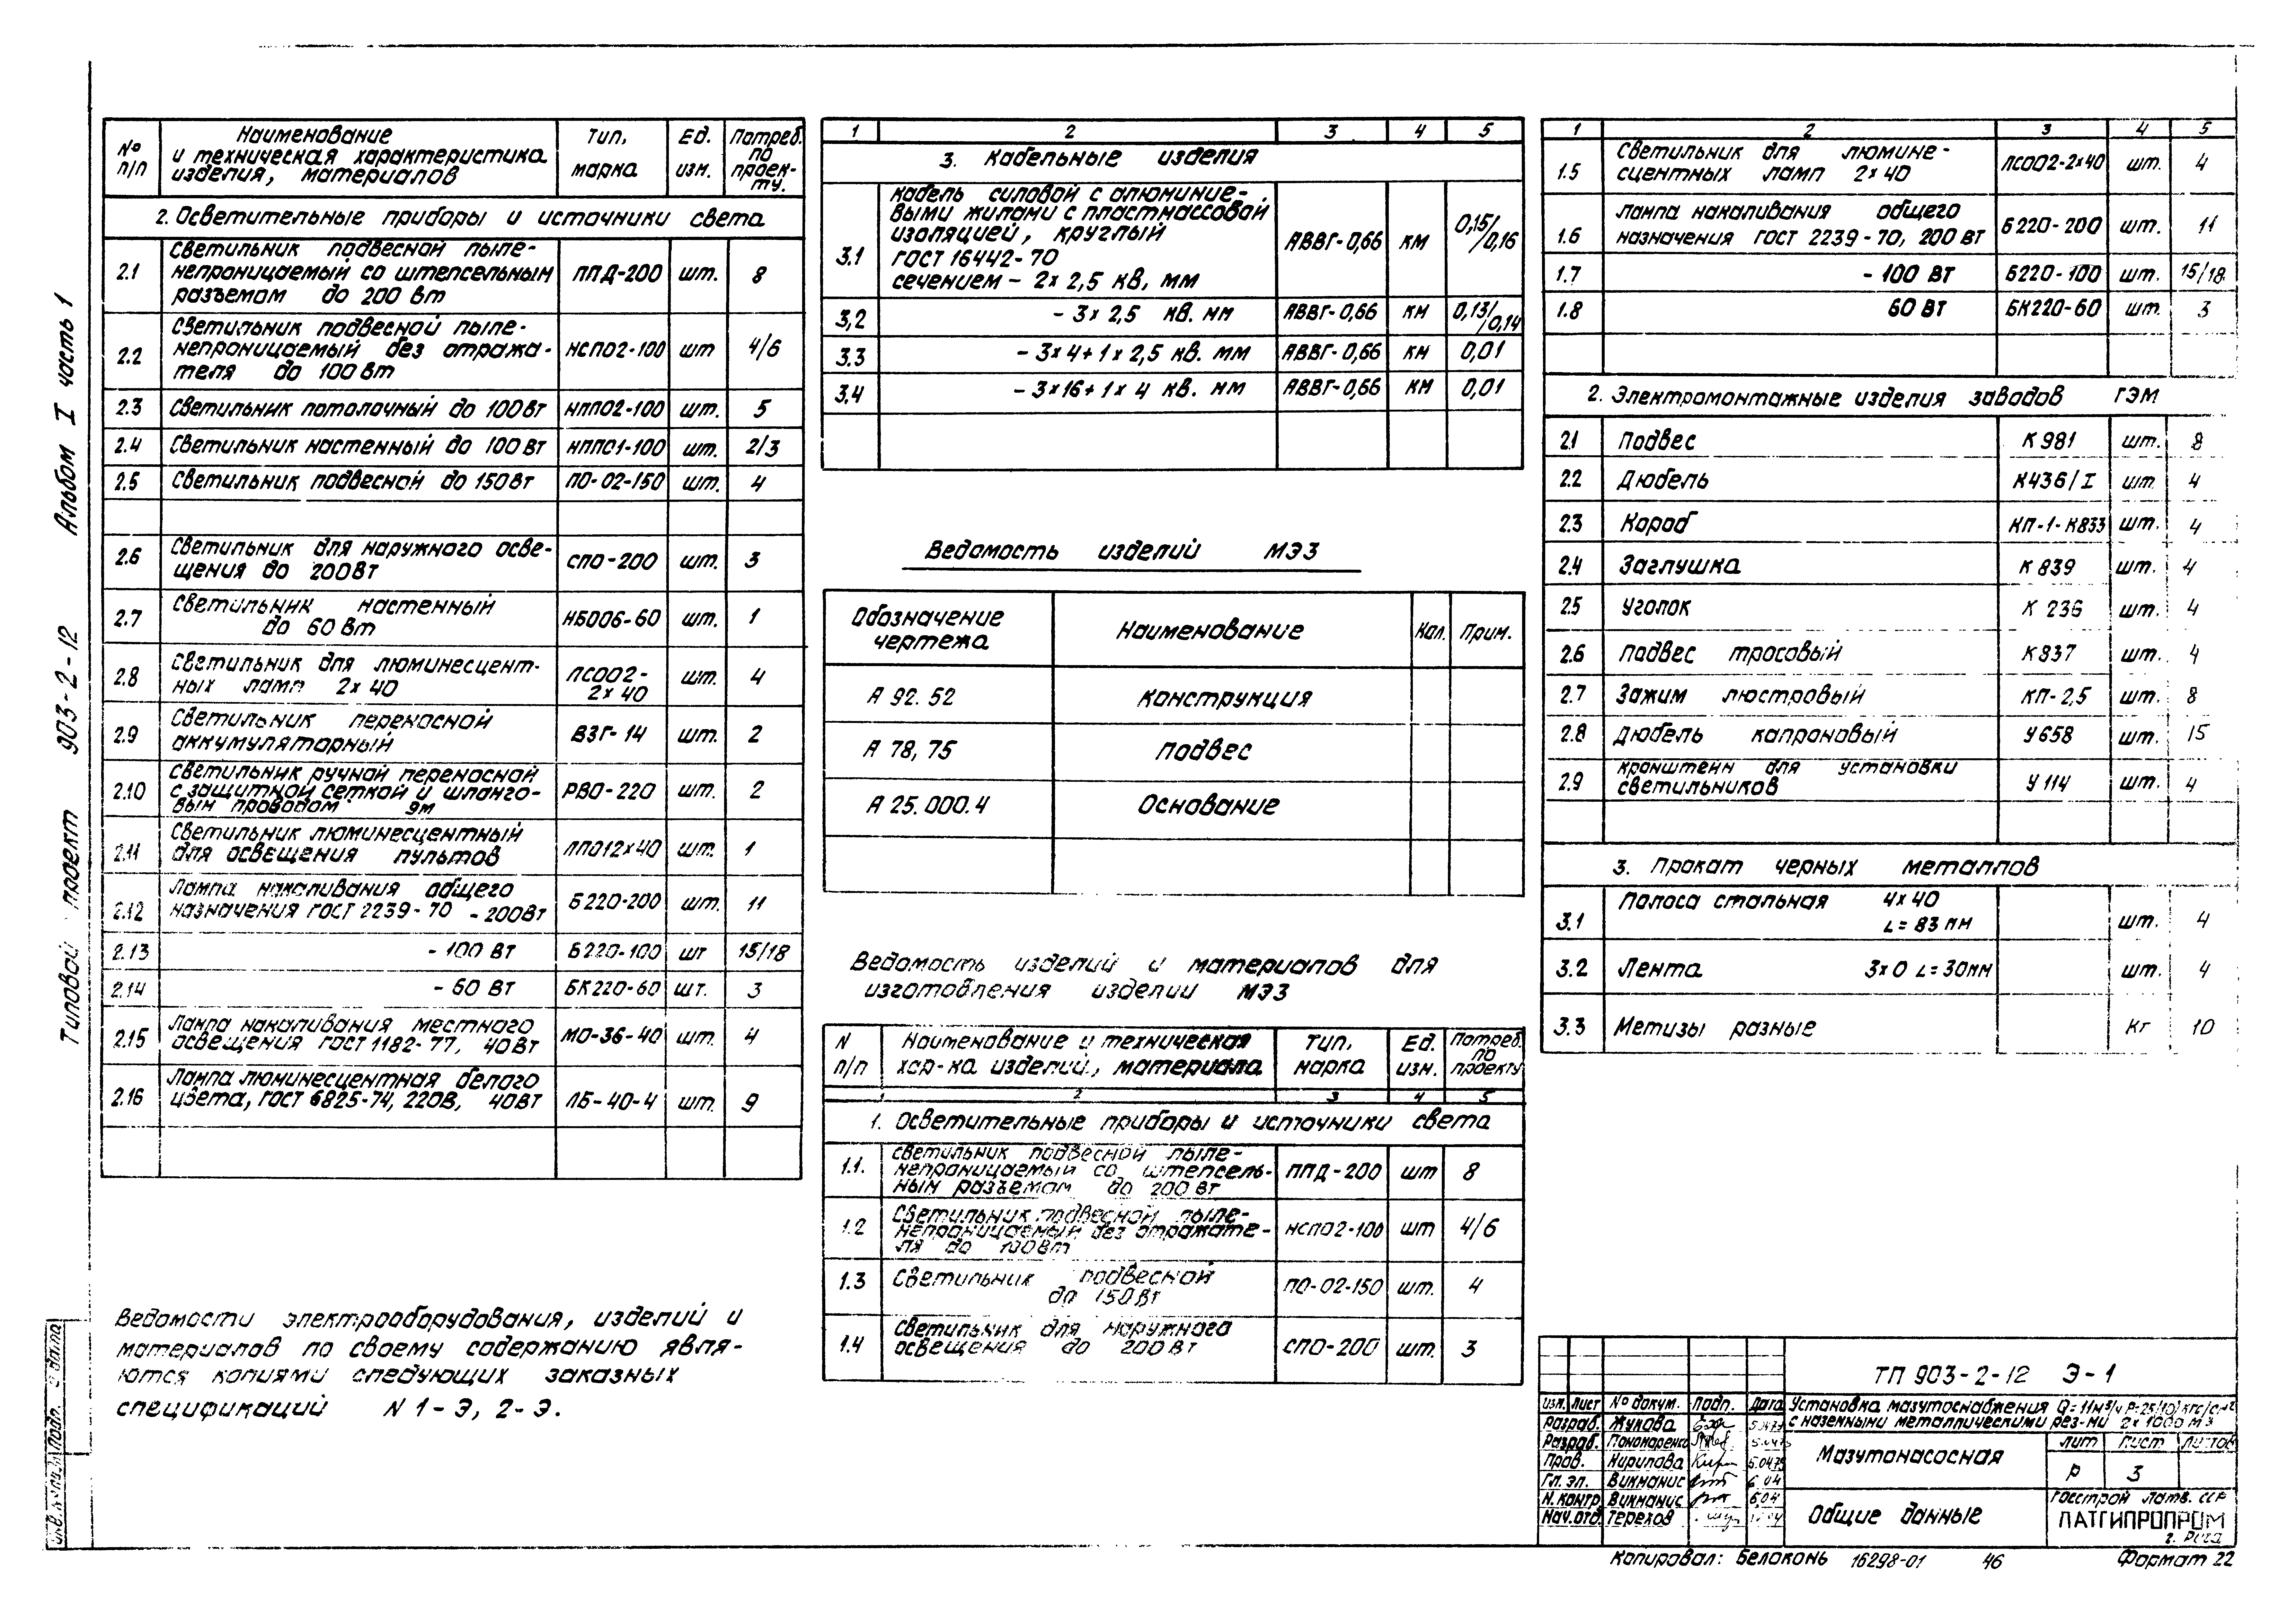 Типовой проект 903-2-12 Альбом I часть 1
№ п/п
Наименование и техническая характеристика изделия, материалов
Тип, марка
Ед. изм.
Потреб. по проек-ту.
2. Осветительные приборы и источники света
2.1 Светильник подвесной пыле-
непроницаемый со штепсельным ППД-200 шт. 8
разъемом до 200 Вт
2.2 Светильник подвесной пыле-
непроницаемый без отража- НСП02-100 шт 4/6
теля до 100 Вт
2.3 Светильник потолочный до 100 Вт НПП02-100 шт. 5
2.4 Светильник настенный до 100 Вт НПП01-100 шт. 2/3
2.5 Светильник подвесной до 150 Вт ПО-02-150 шт. 4
2.6 Светильник для наружного осве-
щения до 200 Вт СПО-200 шт. 3
2.7 Светильник настенный
до 60 Вт НБ006-60 шт. 1
2.8 Светильник для люминесцент-
ных ламп 2х40 ЛСО02-2х40 шт. 4
2.9 Светильник переносной
аккумуляторный ВЗГ-14 шт. 2
2.10 Светильник ручной переносной
с защитной сеткой и шланго- РВО-220 шт. 2
вым проводом 9м
2.11 Светильник люминесцентный
для освещения пультов ЛПО12х40 шт. 1
2.12 Лампа накаливания общего
назначения ГОСТ 2239-70 - 200 Вт Б220-200 шт. 11
2.13 - 100 Вт Б220-100 шт 15/18
2.14 - 60 Вт БК220-60 шт. 3
2.15 Лампа накаливания местного
освещения ГОСТ 1182-77, 40 Вт МО-36-40 шт. 4
2.16 Лампа люминесцентная белого
цвета, ГОСТ 6825-74, 220В, 40 Вт ЛБ-40-4 шт. 9
Ведомости электрооборудования, изделий и
материалов по своему содержанию явля-
ются копиями следующих заказных
спецификаций N 1-Э, 2-Э.
1 2 3 4 5
3. Кабельные изделия
3.1 Кабель силовой с алюминие-
выми жилами с пластмассовой
изоляцией, круглый АВВГ-0,66 км 0,15/0,16
ГОСТ 16442-70
сечением - 2х2,5 кв, мм
3,2 - 3х2,5 кв. мм АВВГ-0,66 км 0,13/0,14
3.3 - 3х4+1х2,5 кв. мм АВВГ-0,66 км 0,01
3.4 - 3х16+1х4 кв. мм АВВГ-0,66 км 0,01
Ведомость изделий МЭЗ
Обозначение чертежа
Наименование
Кол.
Прим.
А 92. 52 Конструкция
А 78, 75 Подвес
А 25.000.4 Основание
Ведомость изделий и материалов для
изготовления изделий МЭЗ
N п/п
Наименование и техническая хар-ка изделий, материала
Тип, марка
Ед. изм.
Потреб. по проекту
1 2 3 4 5
1. Осветительные приборы и источники света
1.1. Светильник подвесной пыле-
непроницаемый со штепсель- ППД-200 шт 8
ным разъемом до 200 Вт
1.2 Светильник подвесной пыле-
непроницаемый без отражате- НСП02-100 шт 4/6
ля до 100 Вт
1.3 Светильник подвесной
до 150 Вт ПО-02-150 шт. 4
1.4 Светильник для наружного
освещения до 200 Вт СПО-200 шт. 3
1 2 3 4 5
1.5 Светильник для люмине-
сцентных ламп 2х40 ЛСО02-2х40 шт. 4
1.6 Лампа накаливания общего
назначения ГОСТ 2239-70, 200 Вт Б220-200 шт. 11
1.7 - 100 Вт Б220-100 шт. 15/18
1.8 60 Вт БК220-60 шт. 3
2. Электромонтажные изделия заводов ГЭМ
2.1 Подвес К 981 шт. 8
2.2 Дюбель К436/I шт. 4
2.3 Короб КП-1-К833 шт. 4
2.4 Заглушка К 839 шт. 4
2.5 Уголок К 236 шт. 4
2.6 Подвес тросовый К837 шт. 4
2.7 Зажим люстровый КП-2,5 шт. 8
2.8 Дюбель капроновый У658 шт. 15
2.9 Кронштейн для установки
светильников У 114 шт. 4
3. Прокат черных металлов
3.1 Полоса стальная 4х40
L=83 мм шт. 4
3.2 Лента 3х0 L=30мм шт. 4
3.3 Метизы разные кг 10
ТП 903-2-12 Э-1
Изм. Лист № докум. Подп. Дата
Разраб. Жукова
Разраб. Пономаренко
Пров. Кирилова
Гл. эл. Викманис
Н. контр. Викманис
Нач. отд. Терехов
Установка мазутоснабжения Q=11м³/ч P=25/10/кгс/см²
с наземными металлическими рез-ми 2х1000 м3
Мазутонасосная
Лит Лист Листов
Р 3
Общие данные
Госстрой Латв. ССР
ЛАТГИПРОПРОМ
г. Рига
Копировал: Белоконь 16298-01 46 Формат 22